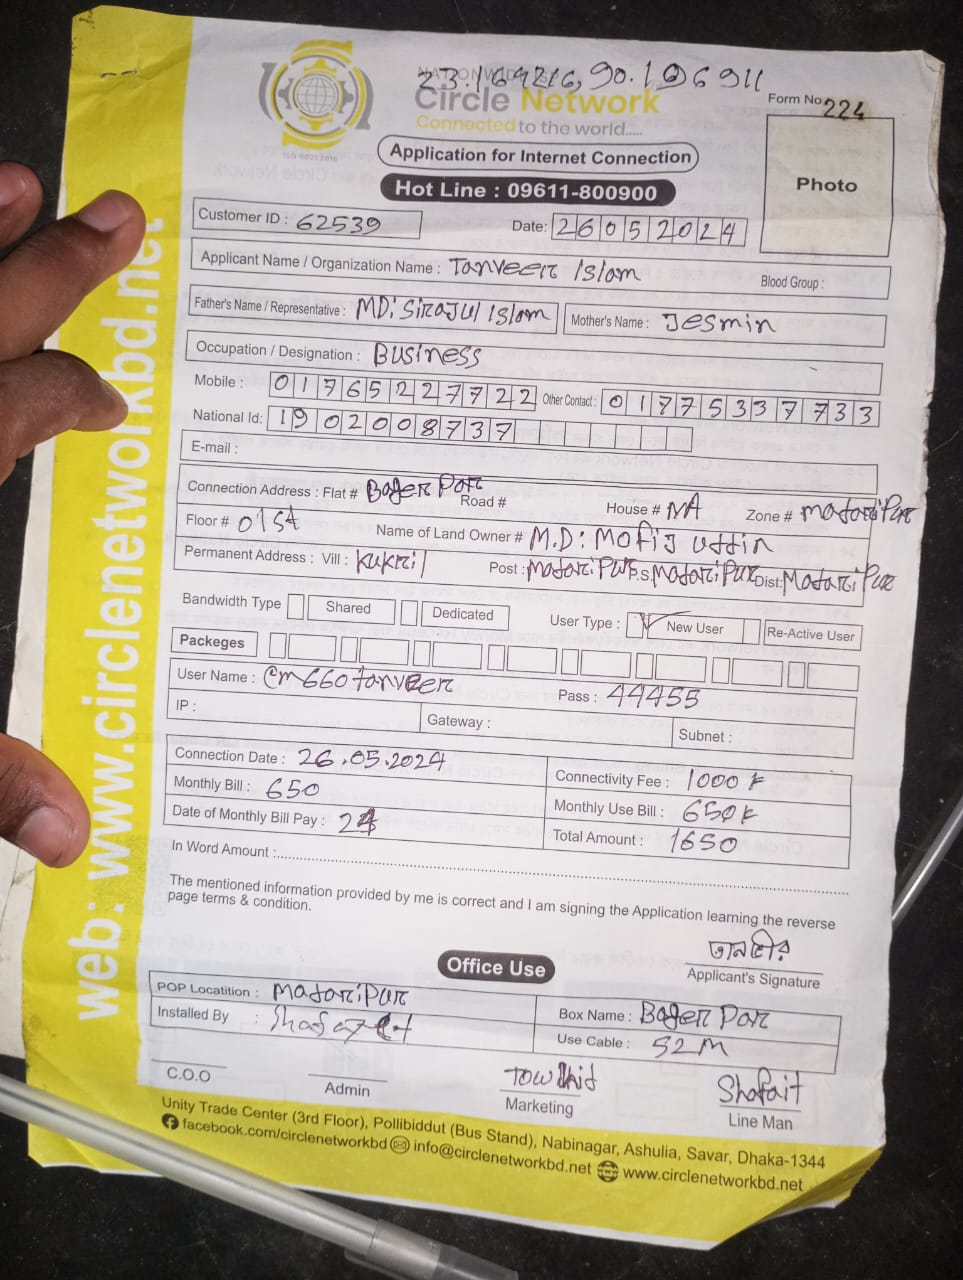 23.164216, 90.196911
NATIONWIDE ISP
Circle Network
Connected to the world.....
ISO 9001:2015
Form No. 224
Photo
Application for Internet Connection
Hot Line : 09611-800900
Customer ID : 62539 Date: 26052024
Applicant Name / Organization Name : Tanveer Islam Blood Group :
Father's Name / Representative : MD: Sirajul Islam Mother's Name : Jesmin
Occupation / Designation : Business
Mobile : 01765227722 Other Contact : 01775337733
National Id: 1902008737
E-mail :
Connection Address : Flat # Bager Par Road # House # NA Zone # Madaripur
Floor # 01st Name of Land Owner # M.D: Mofij uddin
Permanent Address : Vill : Kukril Post : Madaripur P.S. Madaripur Dist: Madaripur
Bandwidth Type Shared Dedicated User Type : New User Re-Active User
Packeges
User Name : @m660tanveer Pass : 44455
IP : Gateway : Subnet :
Connection Date : 26.05.2024 Connectivity Fee : 1000 ৳
Monthly Bill : 650 Monthly Use Bill : 650৳
Date of Monthly Bill Pay : 24 Total Amount : 1650
In Word Amount :
The mentioned information provided by me is correct and I am signing the Application learning the reverse
page terms & condition.
তানভীর
Applicant's Signature
Office Use
POP Locatition : Madaripur Box Name : Bager Par
Installed By : Shafayet Use Cable : 52 M
Towhid Shafait
C.O.O Admin Marketing Line Man
Unity Trade Center (3rd Floor), Pollibiddut (Bus Stand), Nabinagar, Ashulia, Savar, Dhaka-1344
facebook.com/circlenetworkbd info@circlenetworkbd.net www.circlenetworkbd.net
web: www.circlenetworkbd.net